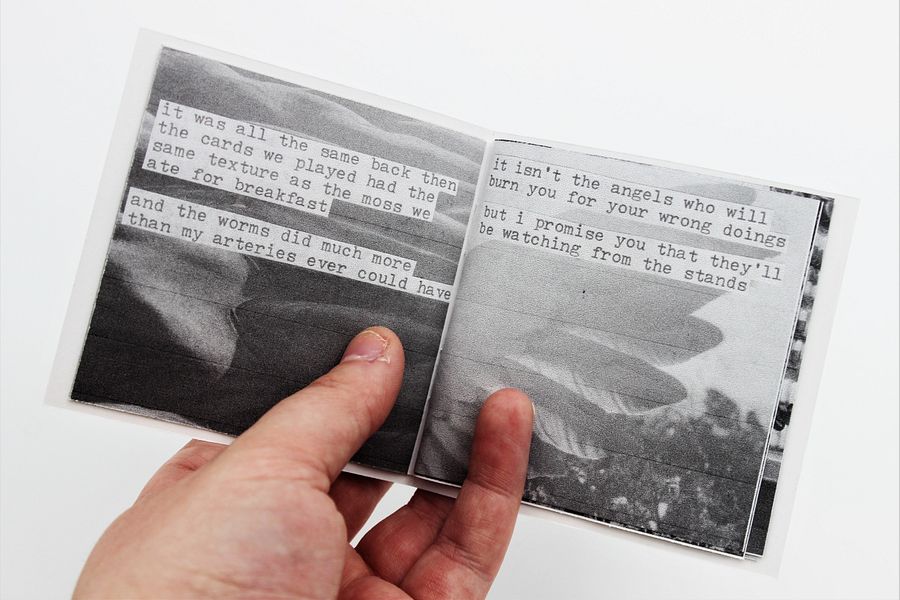 it was all the same back then
the cards we played had the
same texture as the moss we
ate for breakfast
and the worms did much more
than my arteries ever could have
it isn't the angels who will
burn you for your wrong doings
but i promise you that they'll
be watching from the stands